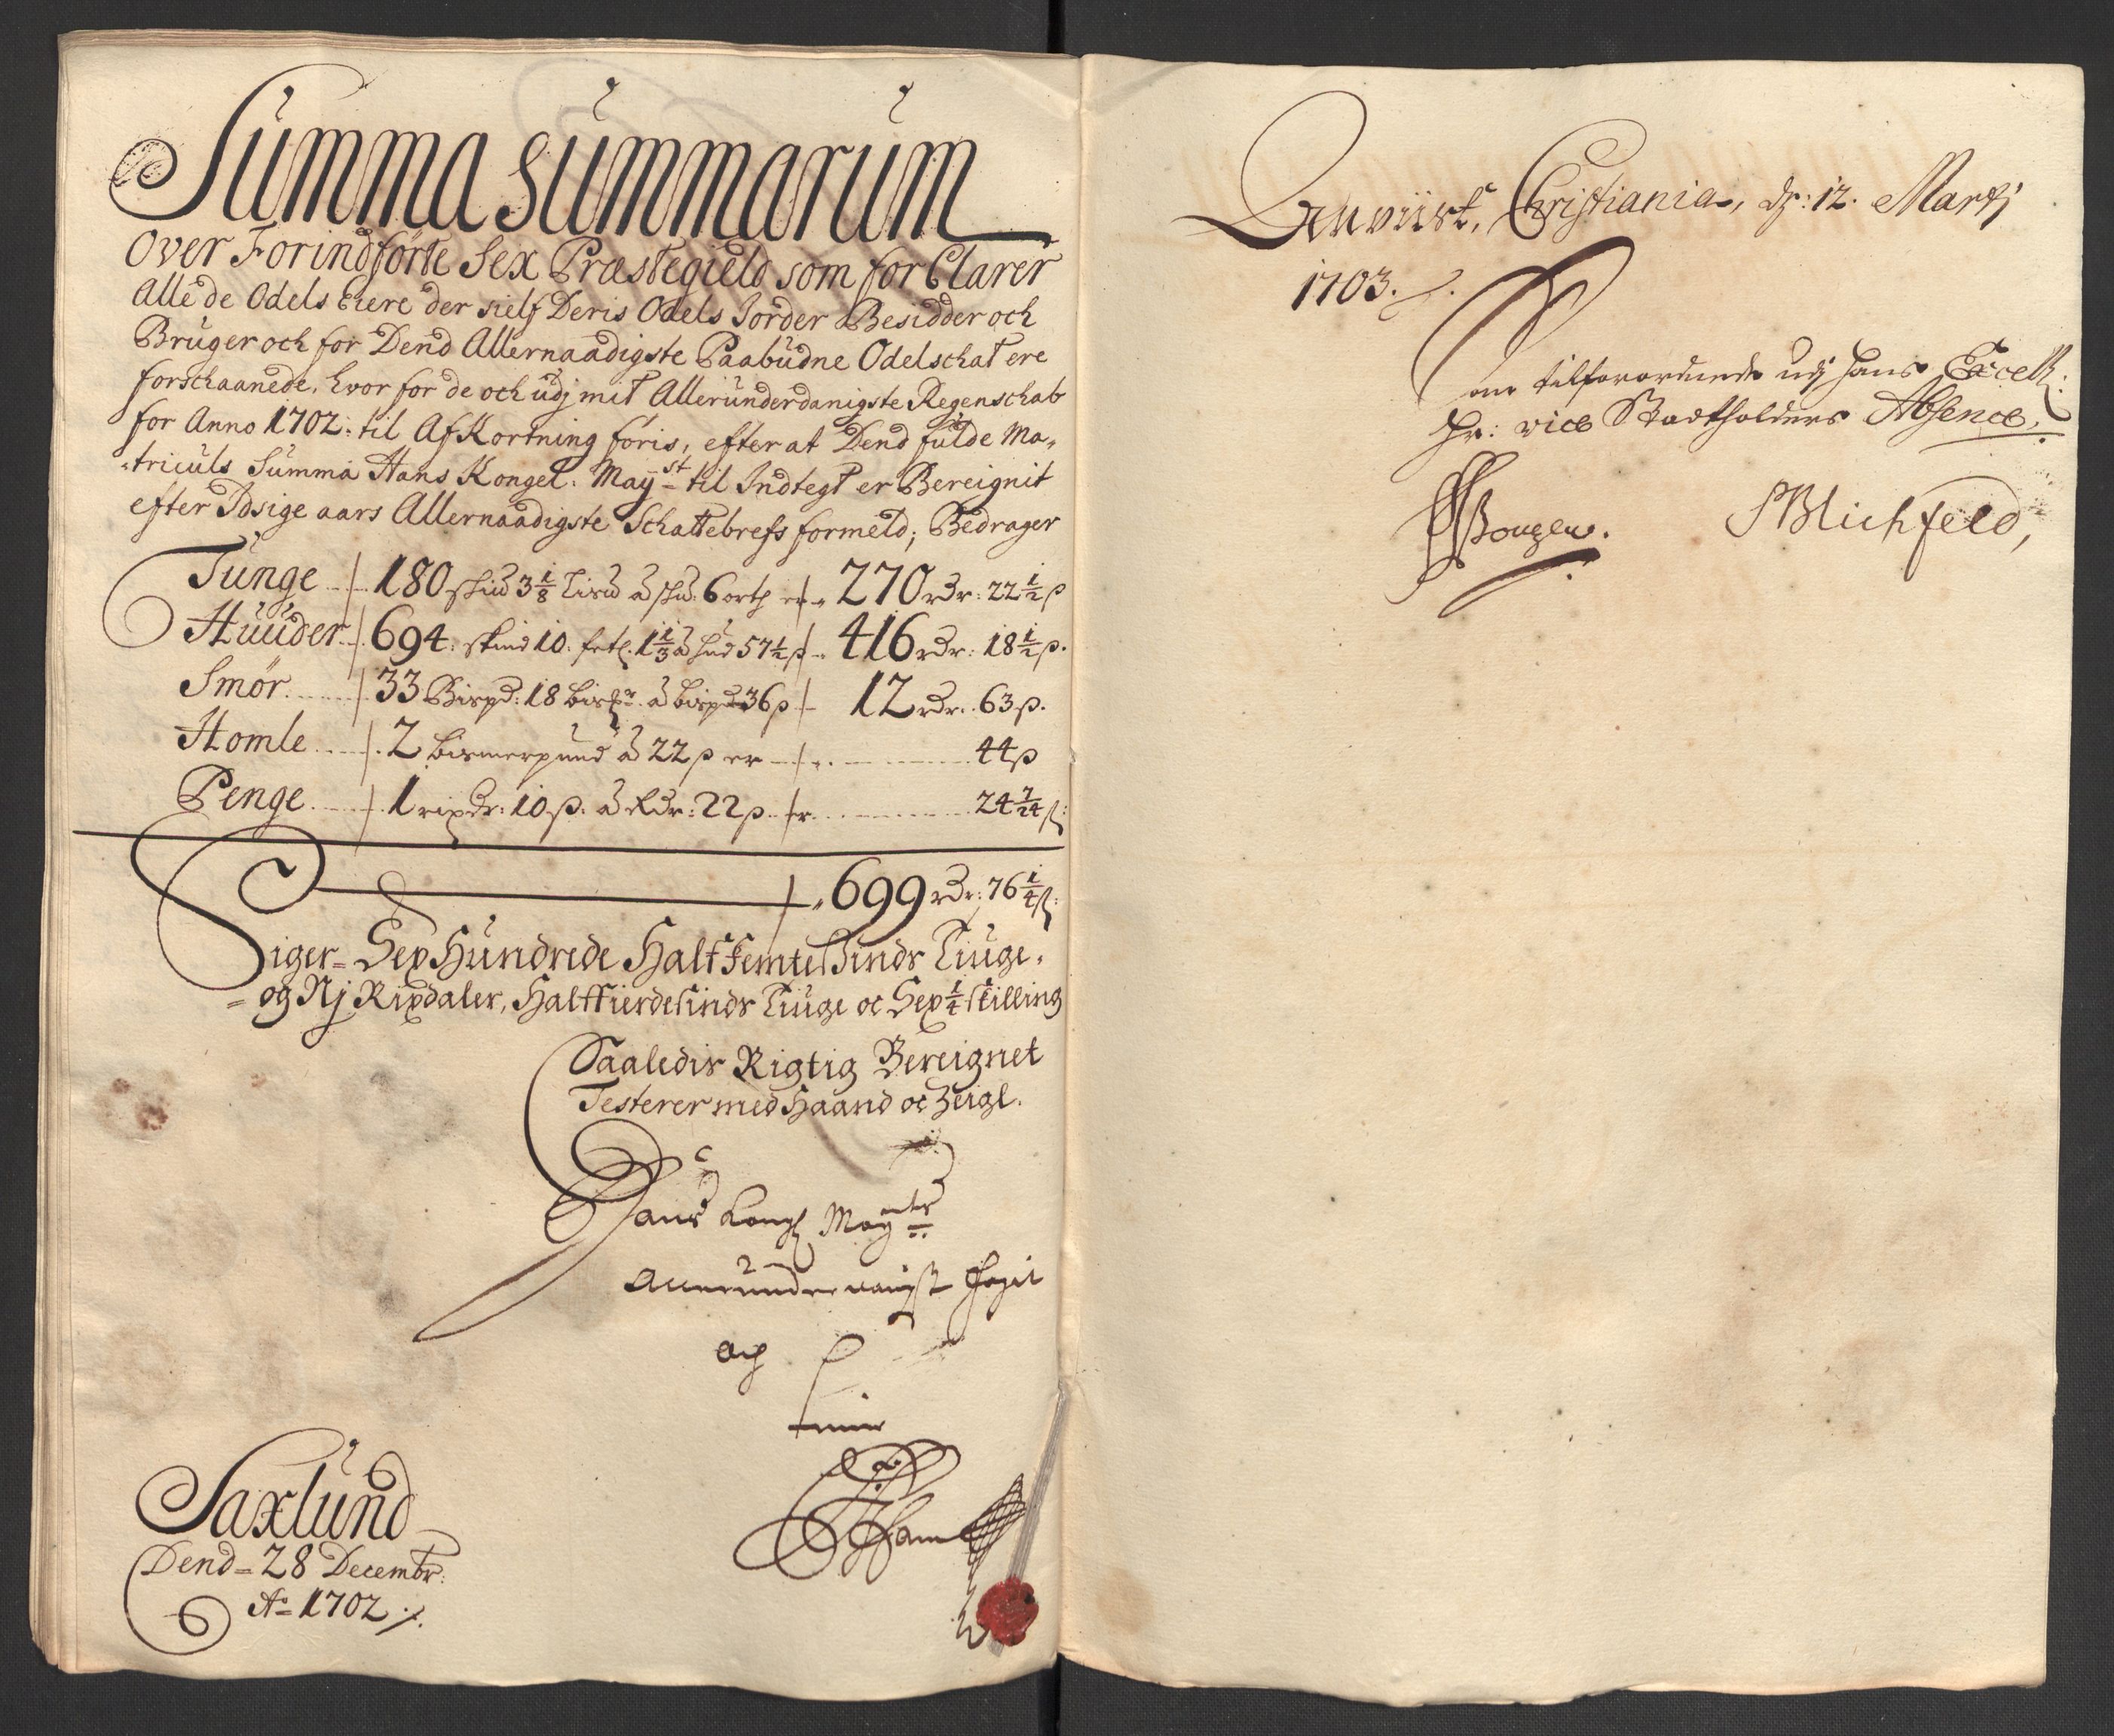 Summa Summarum
Over Forindførte Sex Præstegield som for Clarer
Alle de Odels Eiere der sielf Deris Odels Jorder Besidder och
Bruger och for Dend Allernaadigste Paabudne Odelschat ere
forschaanede, hvor for de och udj mit Allerunderdanigste Regenschab
for Anno 1702: til AfKortning føris, efter at Dend fulde Ma-
-triculs Summa Hans Kongel: May.st til Indtegt er Bereignit
efter Idsige aars Allernaadigste Schattebrefs formeld; Bedrager
Tunge 180 skud 3 1/8 Lisd a skd: 6 ort er 270 rdr: 22 1/2 ß
Huuder 694: skind 10: 1 1/3 a hud 57 1/2 ß 416 rdr: 18 1/2 ß.
Smør 33 Bispd: 18 a bispd 36 ß 12 rdr. 63 ß.
Homle 2 bismerpund a 22 ß er 44 ß
Penge 1 rixdr: 10 ß. a Rdr: 22 ß. er 24 7/24 ß:
699 rdr: 76 1/4 ß:
Siger= Sex Hundrede Halffemtesinds Tiuge-
= og Nj Rixdaler, Halffierdesinds Tiuge oc Sex 1/4 skilling
Saaledis Rigtig Bereignet
Testerer med Haand oc Zeigl.
Hans Kongl May.ts
Allerunderdanigst Fogit
och
Saxlund
Dend= 28 Decembr:
A:= 1702 ./.
Revviist, Christiania, d: 12. Martj
1703.
tilforordnede udj hans Excell:
Hr: vice Stadtholders Absence,
Blichfeld,